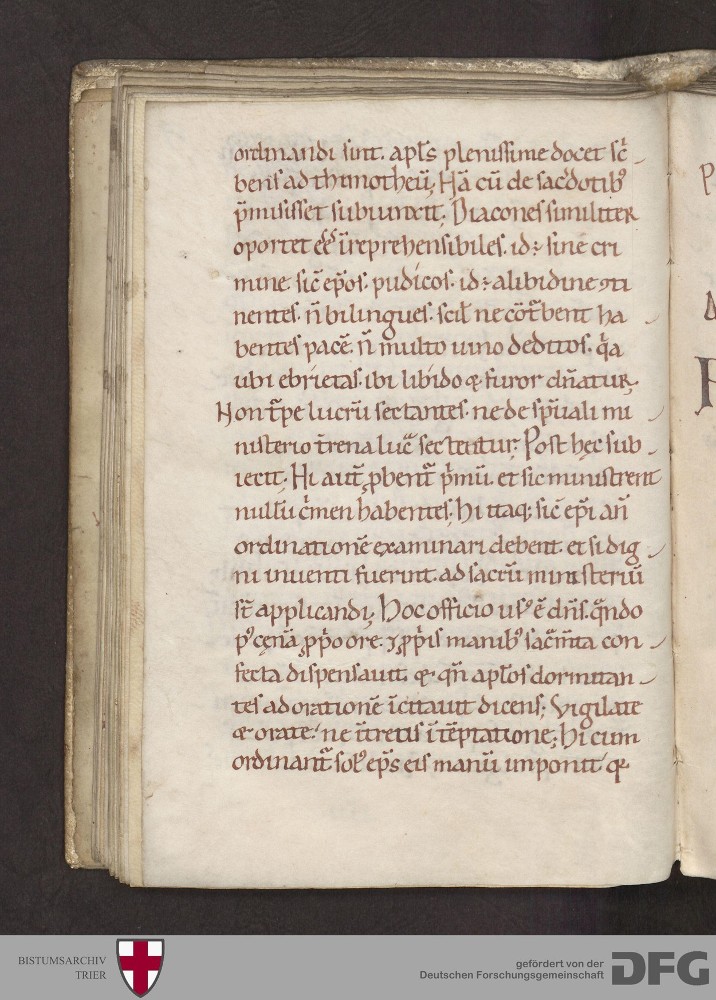 ordinandi sunt. apl̄s plenissime docet sc̄ri
bens ad thimotheū; Hāc cū de sacdotibꝰ
p̄misisset subiunxit; Diacones similiter
oportet eē irreprehensibiles. id ÷ sine cri
mine. sic̄ ep̄os. pudicos. id ÷ a libidine ꝯti
nentes. n̄ bilingues. scil ne cōturbent ha
bentes pacē. n̄ multo uino deditos. q̄a
ubi ebrietas. ibi libido & furor dn̄atur.
Non t̄pe lucrū sectantes. ne de sp̄uali mi
nisterio t̄rena luc̄ sectentur; Post hęc sub
iecit; Hi aut̄ ꝓbent̄ p̄mū. et sic ministrent
nullū c̄men habentes; Hi itaq; sic̄ ep̄i an̄
ordinationē examinari debent. et si dig
ni inuenti fuerint. ad sacrū ministeriū
st̄ applicandi; Hoc officio usꝰ ē dn̄s. qn̄do
pꝰ cęnā ꝓp̄o ore. ⁊ ꝓp̄is manibꝰ sac̄m̄ta con
fecta dispensauit. & qn̄ apl̄os dormitan
tes ad orationē īcitauit dicens; Vigilate
& orate. ne īt̄retis ī tēptatione; Hi cum
ordinant̄ solꝰ ep̄s eis manū imponit &
BISTUMSARCHIV
TRIER
gefördert von der
Deutschen Forschungsgemeinschaft
DFG